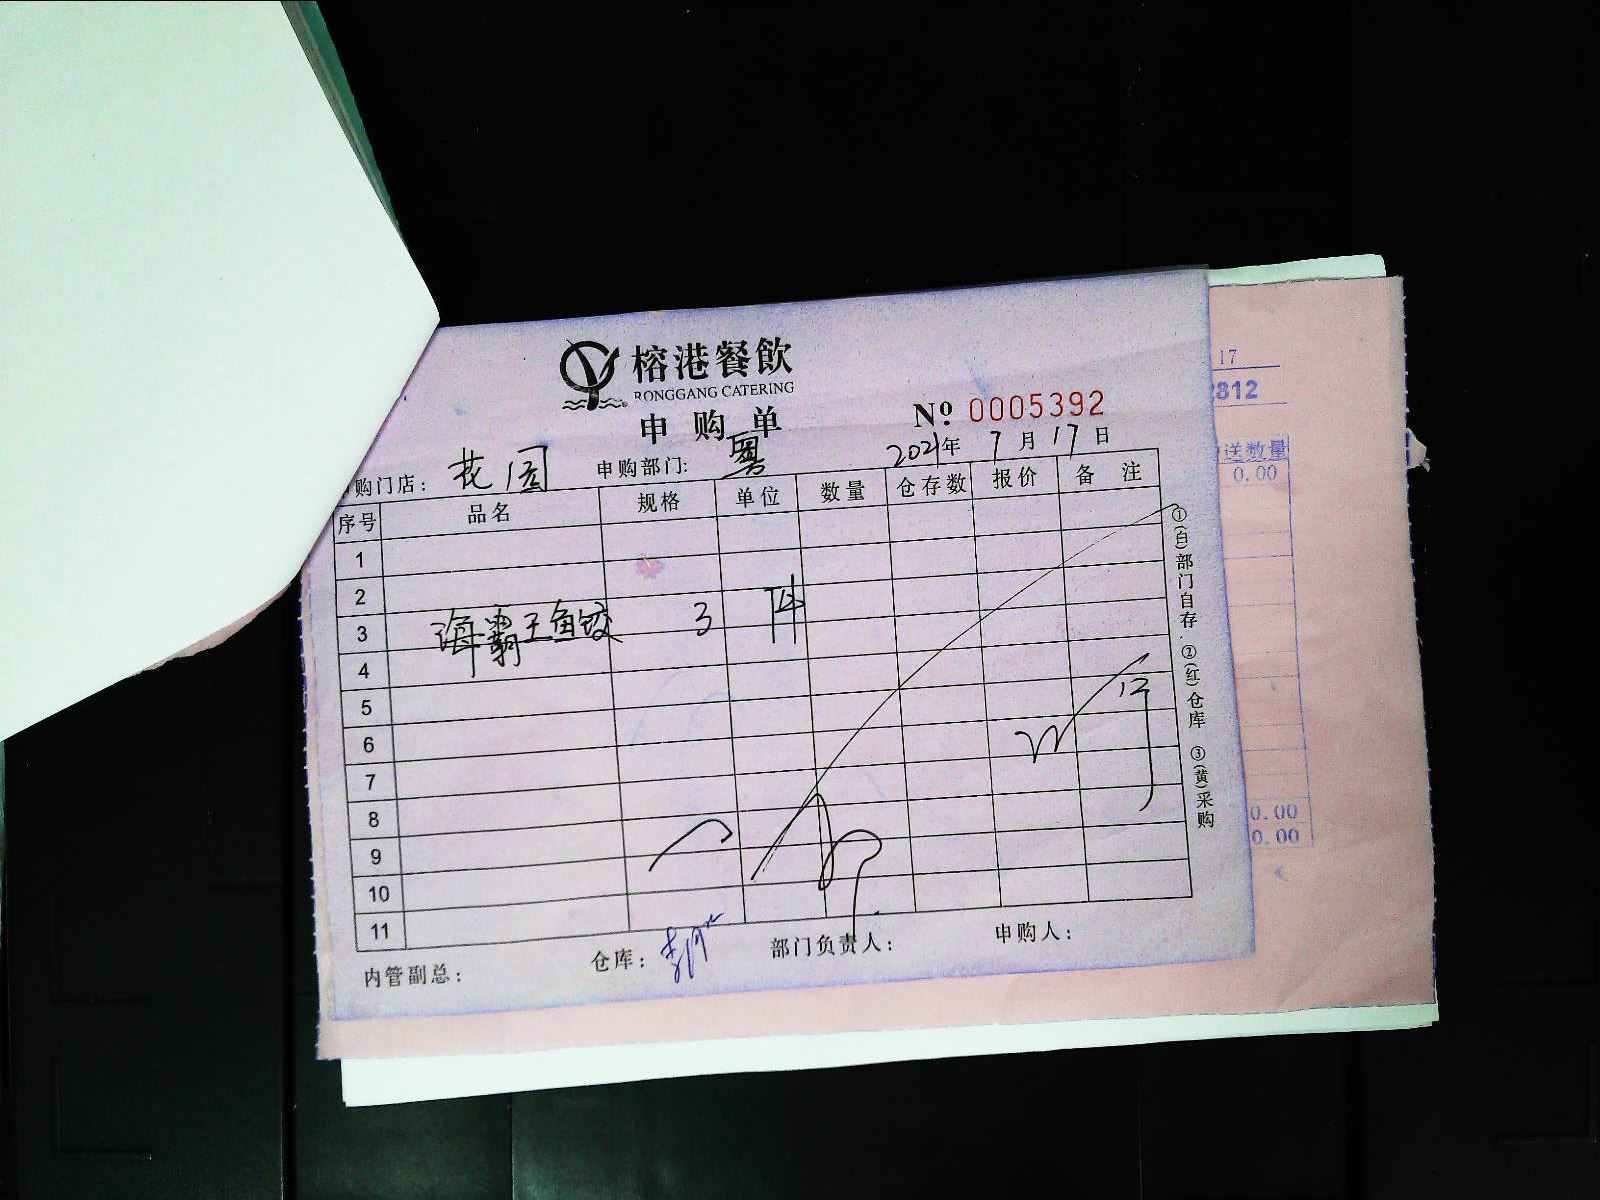 榕港餐飲
RONGGANG CATERING
申购单
№ 0005392
购门店：花园 申购部门：粤 2021年7月17日
序号 品名 规格 单位 数量 仓存数 报价 备注
1
2
3 海霸王鱼饺 3 件
4
5
6
7
8
9
10
11
内管副总： 仓库： 部门负责人： 申购人：
①(白)部门自存 ②(红)仓库 ③(黄)采购
17
2812
送数量
0.00
0.00
0.00